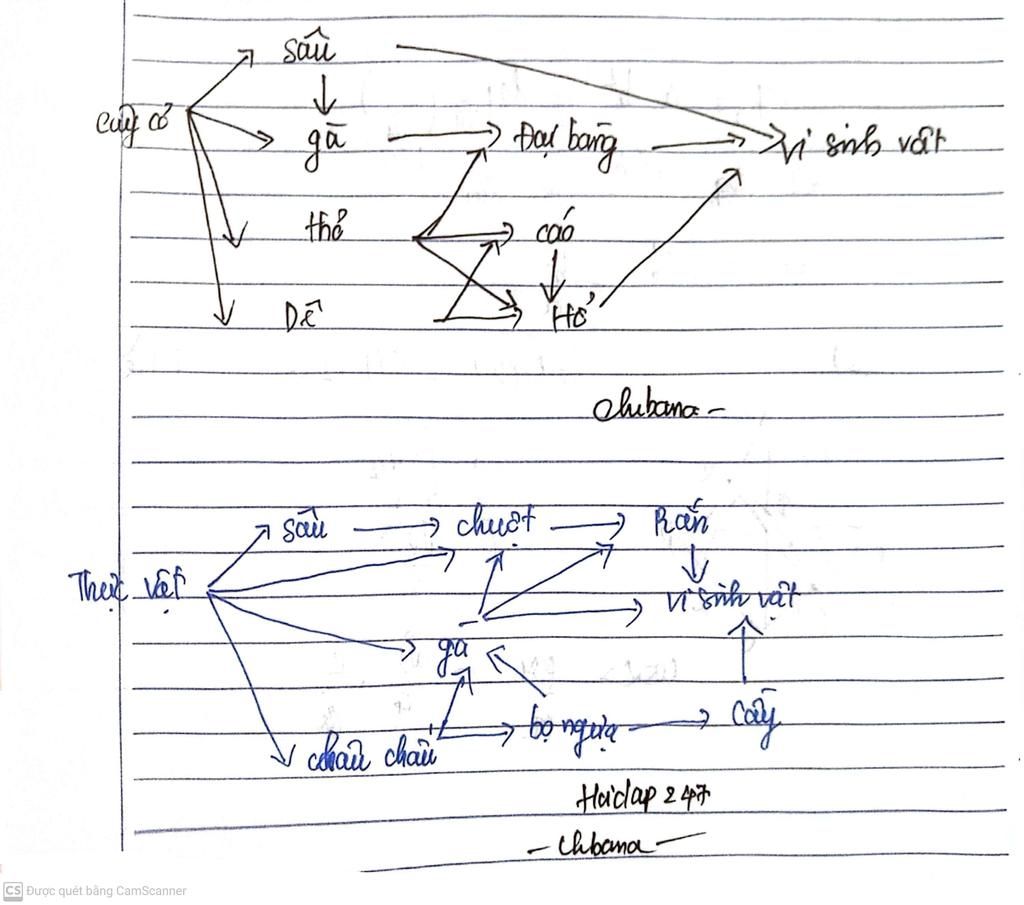 sâu
cây cỏ gà Đại bàng Vi sinh vật
thỏ cáo
Dê Hổ
Chibana -
sâu chuột Rắn
Thực vật vi sinh vật
gà
châu chấu bọ ngựa cầy
Hoidap 247
- Chibana -
CS Được quét bằng CamScanner